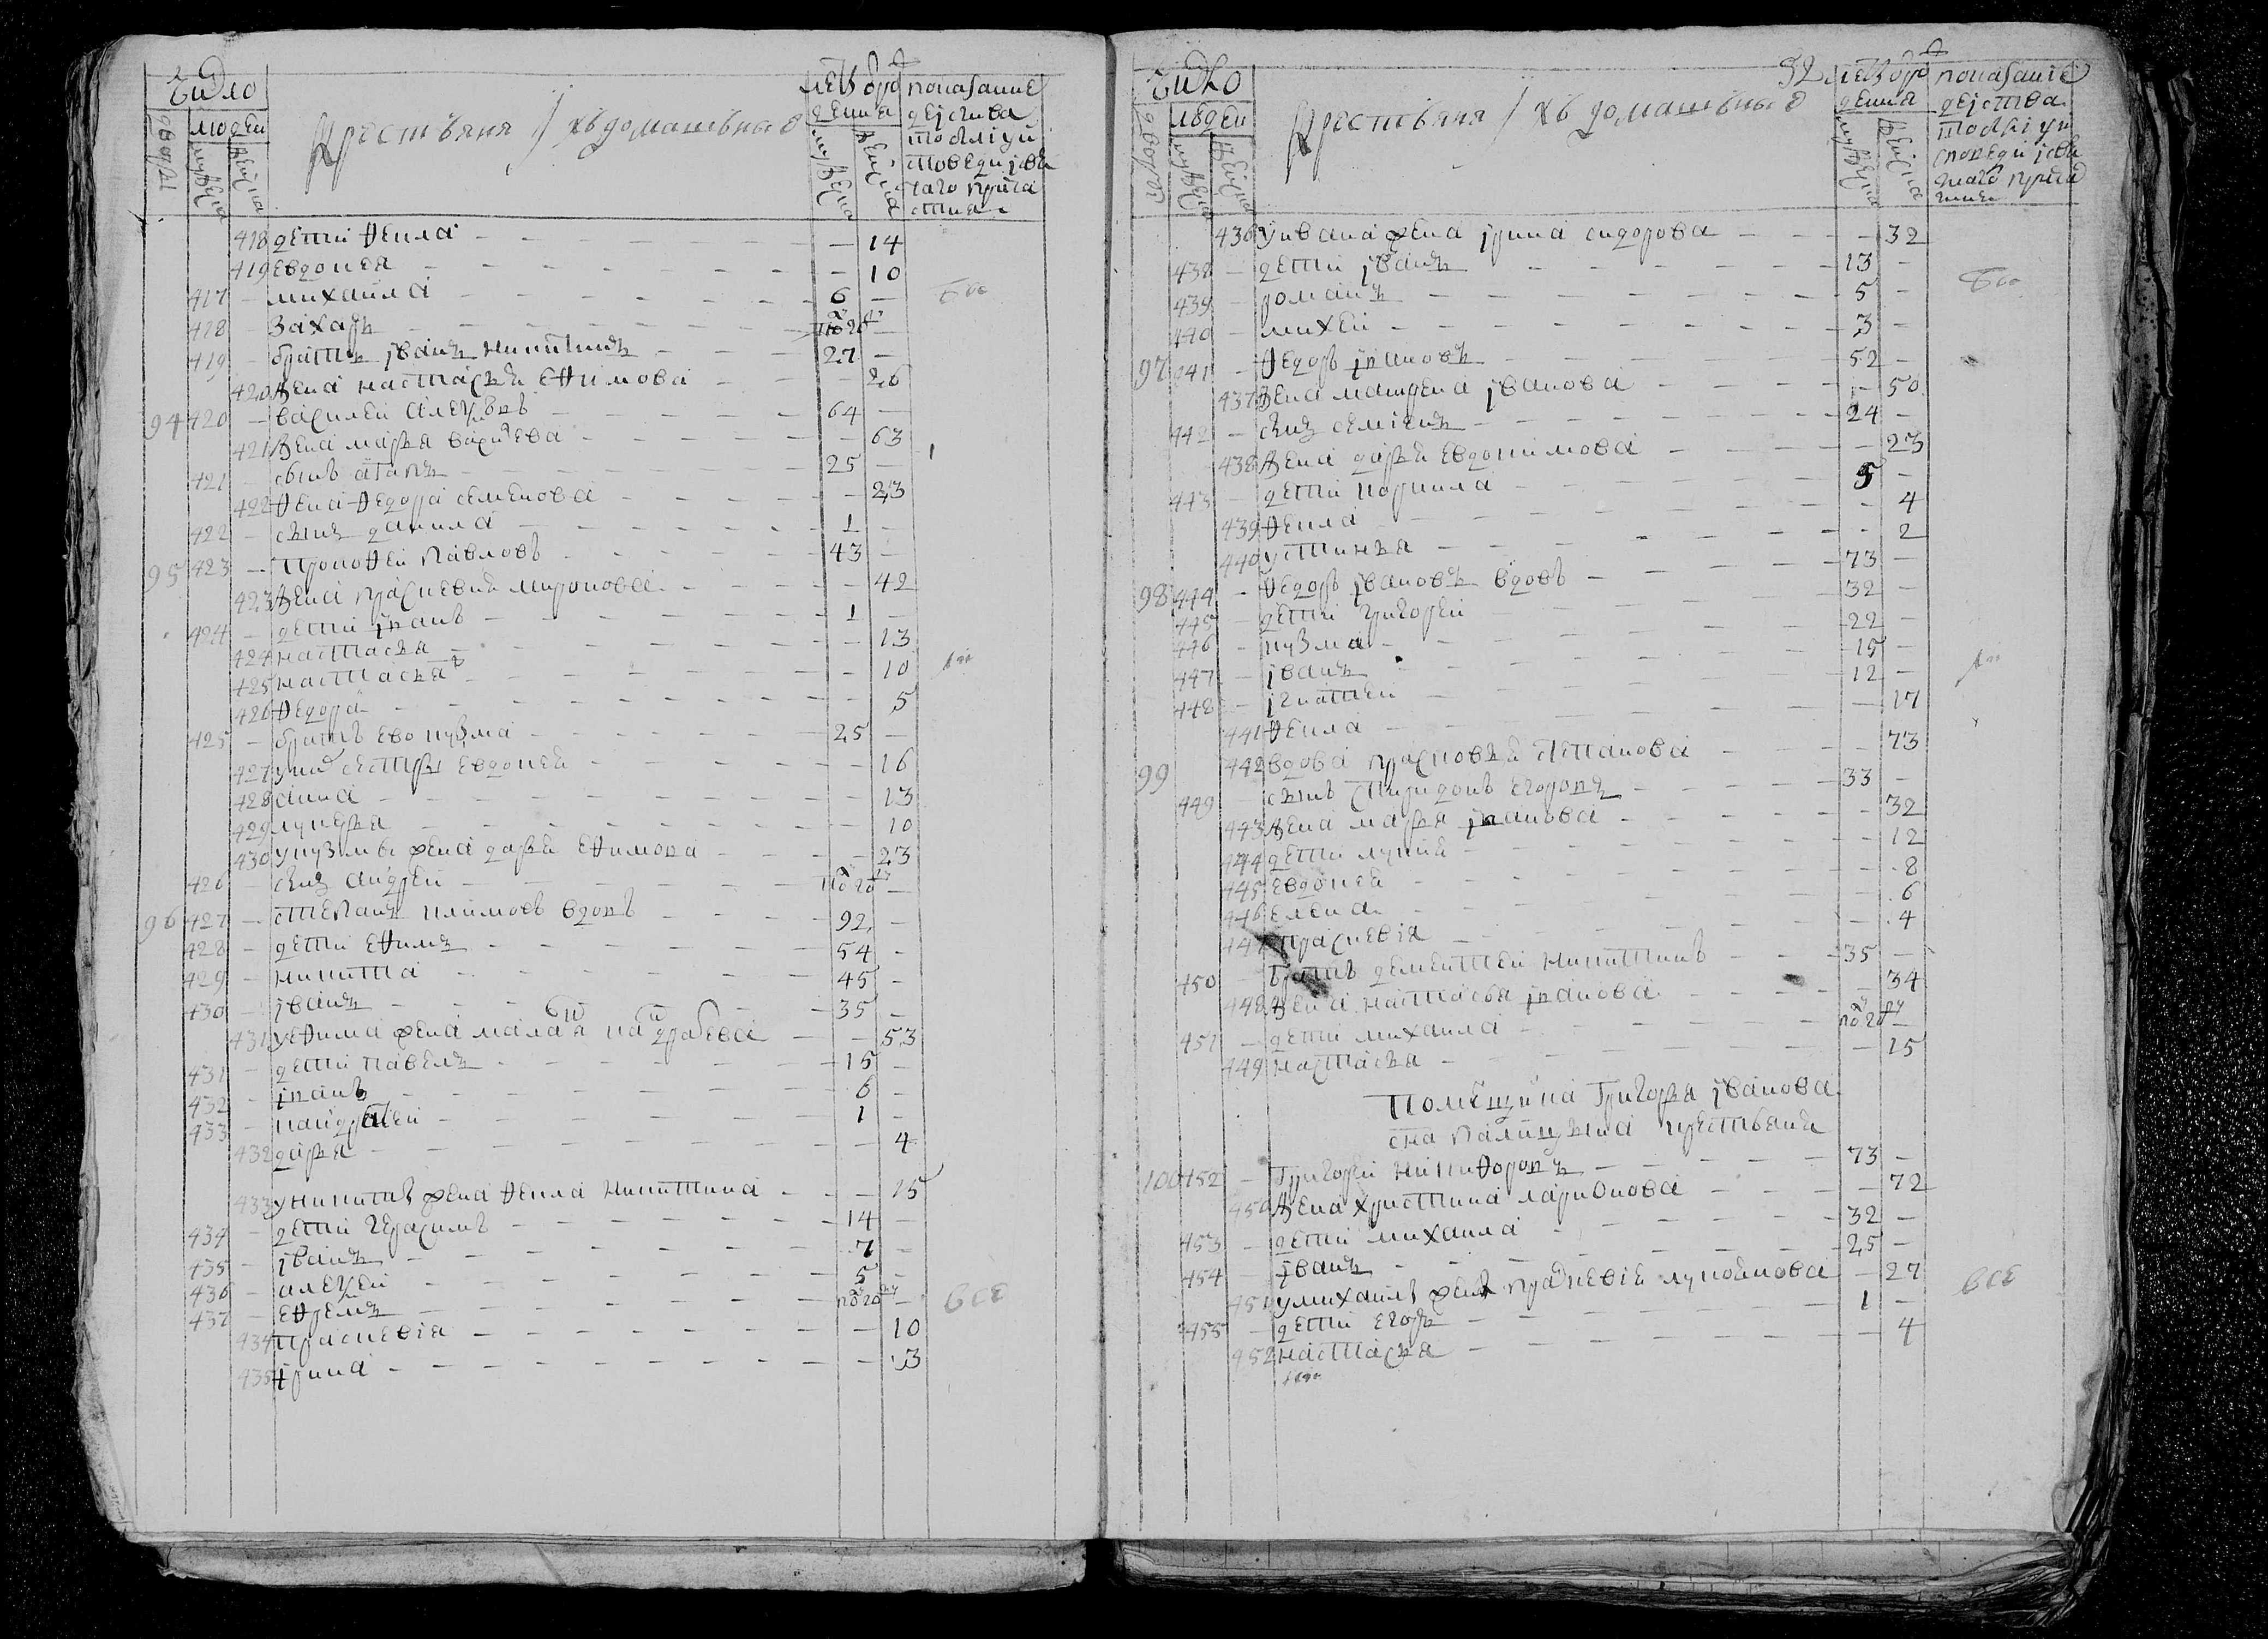 Число
людеи
лѣтъ отро
показание
дворы
мужеска
женска
Крестьяня и ихъ домашьныѳ
418 дети Фекла 14
419 евдокея 10
417 михаила 6
418 захаръ
419 братъ иванъ никитинъ 27
420 жена настасья ефимова 26
94 420 василеи алеѯевъ 64
421 жена марья василева 63
421 сынъ агапъ 25
422 жена федора семенова 23
422 сынъ данила 1
95 423 прокофеи павловъ 43
423 жена праскевия миронова 42
424 дети іванъ 1
424 настасья 13
425 настасья 10
426 федора 5
425 братъ ево кузма 25
427 у них сестры евдокея 16
428 анна 13
429 лукерья 10
430 у кузмы жена дарья ефимова 23
426 сынъ андреи
96 427 степанъ климовъ вдовъ 92
428 дети ефимъ 54
429 никита 45
430 іванъ 35
431 у ефима жена малания 53
431 дети павелъ 15
432 іванъ 6
433 кандратеи 1
432 дарья 4
433 у никиты жена фекла никитина 15
434 дети герасимъ 14
435 іванъ 7
436 алеѯеи 5
437 ефремъ
434 праскевія 10
435 ірина 3
все
Число
людеи
Крестьяня и ихъ домашьныѳ
показание
436 у ивана жена ірина сидорова 32
438 дети іванъ 13
439 романъ 5
440 михеи 3
97 441 федоръ івановъ 52
437 жена матрена іванова 50
442 сынъ семіонъ 24
438 жена дарья евдокимова 23
443 дети корнила 5
439 фекла 4
440 устинья 2
98 444 федоръ івановъ вдовъ 73
445 дети григореи 32
446 кузма 22
447 іванъ 15
448 ігнатеи 12
441 фекла 17
99 442 вдова прасковья степанова 73
449 сынъ спиридонъ егоровъ 33
443 жена марья іванова 32
444 дети лукия 12
445 евдокея 8
446 елена 6
447 праскевія 4
450 братъ дементеи никитинъ 35
448 жена настасья іванова 34
451 дети михаила
449 настасья 15
Помещика Григорья іванова
сна палицына крестьяня
100 452 Григореи никифоровъ 73
450 жена христина ларионова 72
453 дети михаила 32
454 іванъ 25
451 у михаилы жена праскевія лукоянова 27
455 дети егоръ 1
452 настасья 4
все